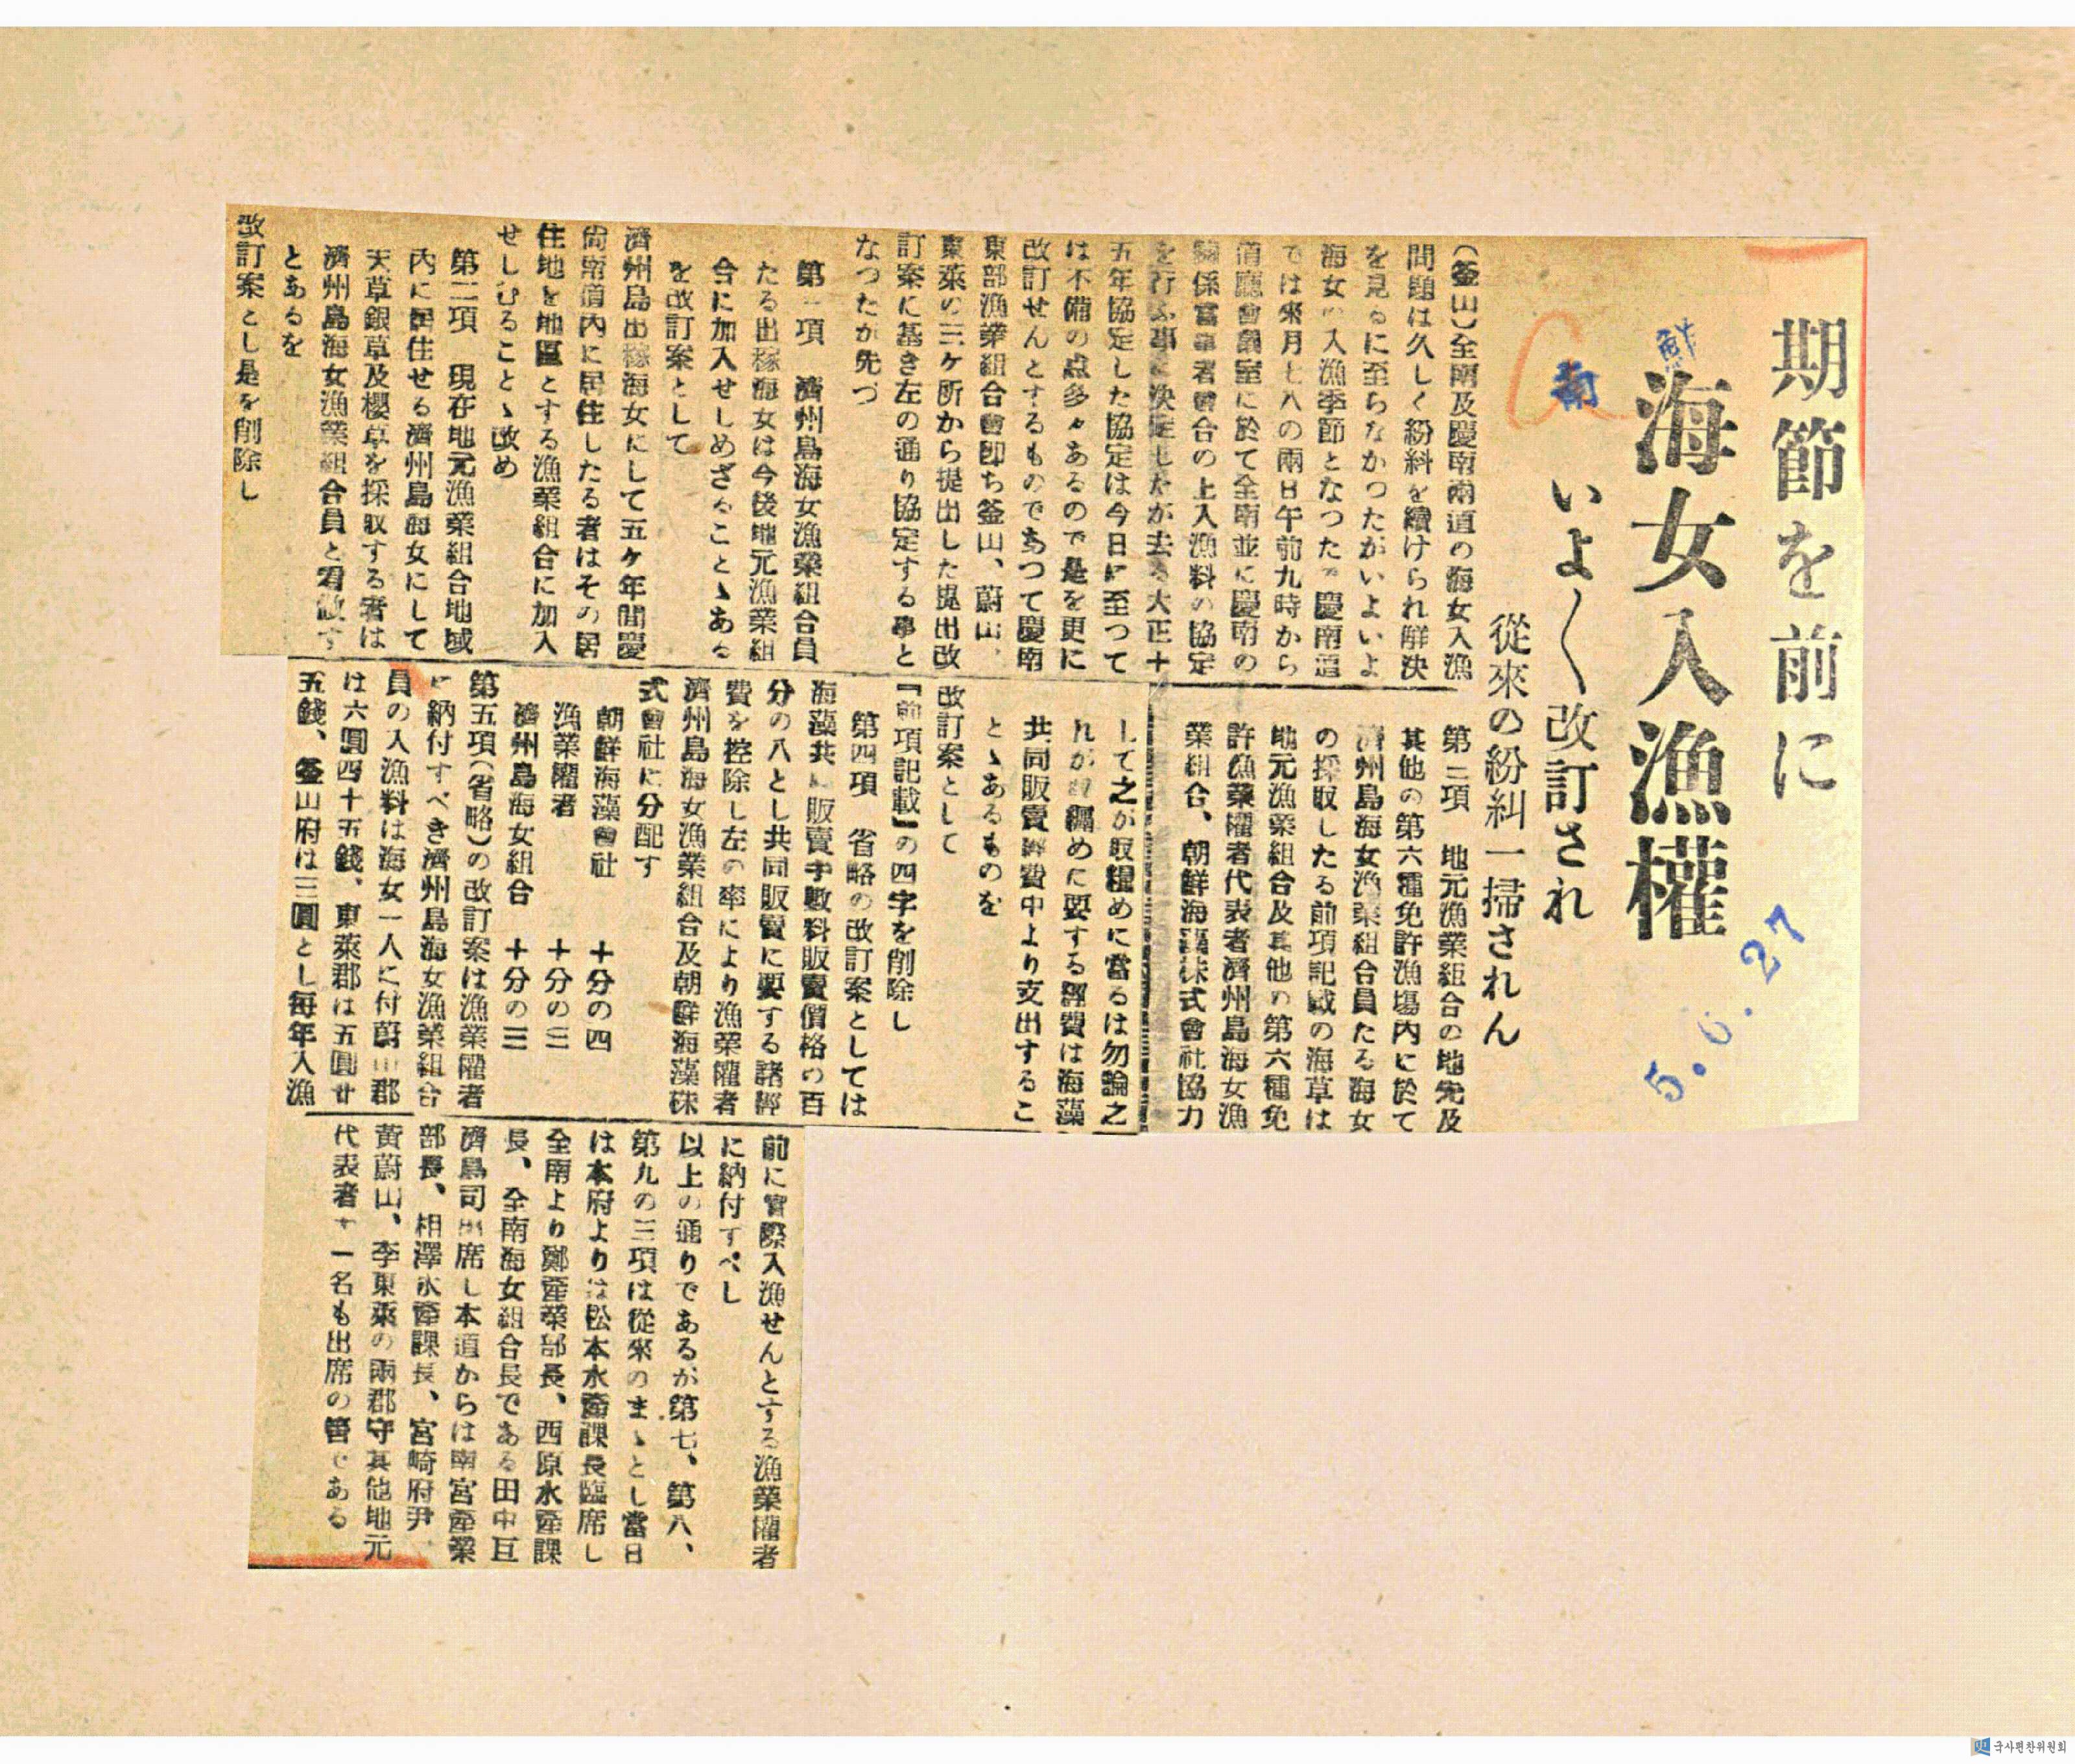 期節を前に
海女入漁權
いよ〱改訂され
從來の紛糾一掃されん
鮮
南
5.6.27
(釜山)全南及慶南兩道の海女入漁
問題は久しく紛糾を續けられ解決
を見るに至らなかつたがいよいよ
海女の入漁季節となつたで慶南道
では來月七八の兩日午前九時から
道廳會議室に於て全南並に慶南の
關係當事者會合の上入漁料の協定
を行ふ事に決定したが去る大正十
五年協定した協定は今日に至つて
は不備の点多々あるので是を更に
改訂せんとするものであつて慶南
東部漁業組合會即ち釜山、蔚山、
東萊の三ケ所から提出した提出改
訂案に基き左の通り協定する事と
なつたが先づ
第一項 濟州島海女漁業組合員
たる出稼海女は今後地元漁業組
合に加入せしめざることゝある
を改訂案として
濟州島出稼海女にして五ケ年間慶
尙南道内に居住したる者はその居
住地を地區とする漁業組合に加入
せしむることゝ改め
第二項 現在地元漁業組合地域
内に居住せる濟州島海女にして
天草銀草及櫻草を採取する者は
濟州島海女漁業組合員と看做す
とあるを
改訂案とし是を削除し
第三項 地元漁業組合の地先及
其他の第六種免許漁場内に於て
濟州島海女漁業組合員たる海女
の採取したる前項記載の海草は
地元漁業組合及其他の第六種免
許漁業權者代表者濟州島海女漁
業組合、朝鮮海藻株式會社協力
して之が取纒めに當るは勿論之
れが取纒めに要する經費は海藻
共同販賣經費中より支出するこ
とゝあるものを
改訂案として
『前項記載』の四字を削除し
第四項 省略の改訂案としては
海藻共同販賣手數料販賣價格の百
分の八とし共同販賣に要する諸經
費を控除し左の率により漁業權者
濟州島海女漁業組合及朝鮮海藻株
式會社に分配す
朝鮮海藻會社 十分の四
漁業權者 十分の三
濟州島海女組合 十分の三
第五項(省略)の改訂案は漁業權者
に納付すべき濟州島海女漁業組合
員の入漁料は海女一人に付蔚山郡
は六圓四十五錢、東萊郡は五圓廿
五錢、釜山府は三圓とし每年入漁
前に實際入漁せんとする漁業權者
に納付すべし
以上の通りであるが第七、第八、
第九の三項は從來のまゝとし當日
は本府よりは松本水産課長臨席し
全南より鄭産業部長、西原水産課
長、全南海女組合長である田中亘
濟島司出席し本道からは南宮産業
部長、相澤水産課長、宮崎府尹、
黃蔚山、李東萊の兩郡守其他地元
代表者十一名も出席の筈である
국사편찬위원회